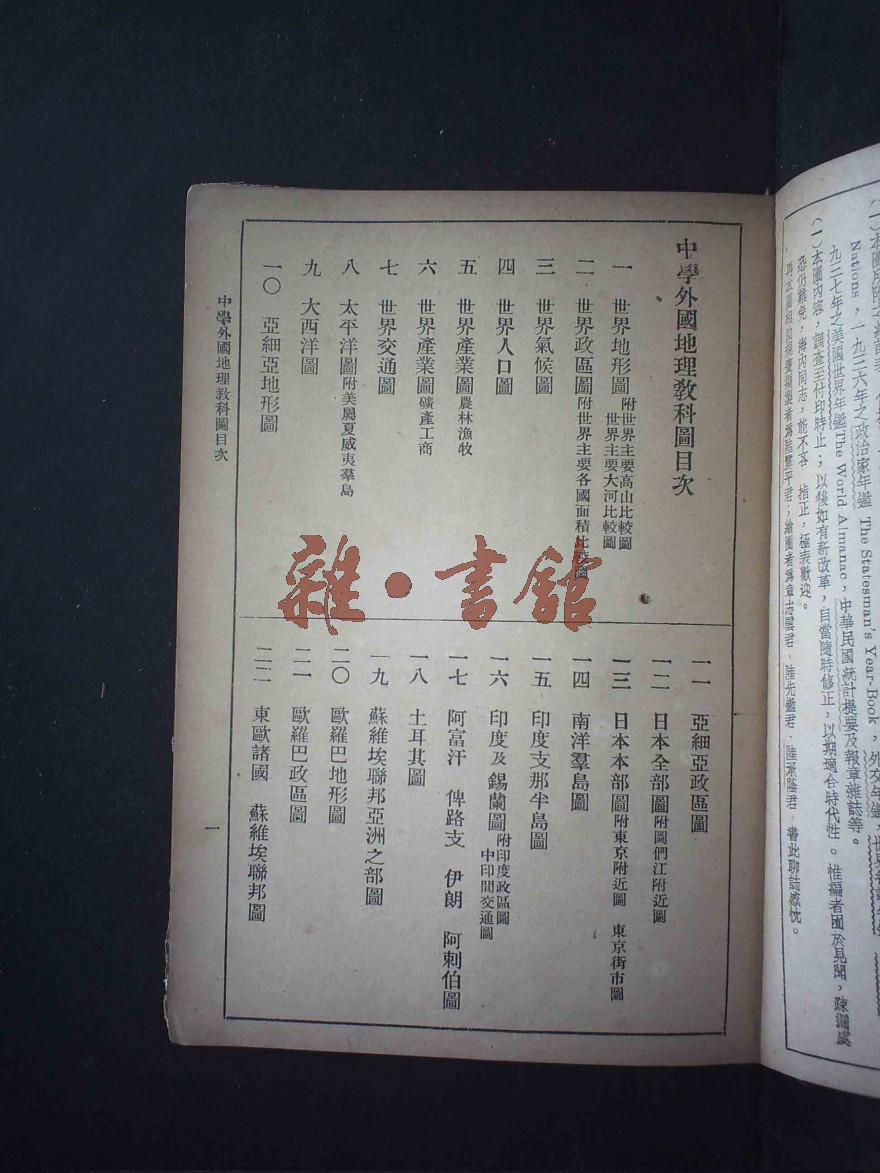 中學外國地理教科圖目次
一　世界地形圖附世界主要高山比較圖
世界主要大河比較圖
二　世界政區圖附世界主要各國面積比較圖
三　世界氣候圖
四　世界人口圖
五　世界產業圖農林漁牧
六　世界產業圖礦產工商
七　世界交通圖
八　太平洋圖附美屬夏威夷羣島
九　大西洋圖
一〇　亞細亞地形圖
一一　亞細亞政區圖
一二　日本全部圖附圖們江附近圖
一三　日本本部圖附東京附近圖　東京街市圖
一四　南洋羣島圖
一五　印度支那半島圖
一六　印度及錫蘭圖附印度政區圖
中印間交通圖
一七　阿富汗　俾路支　伊朗　阿剌伯圖
一八　土耳其圖
一九　蘇維埃聯邦亞洲之部圖
二〇　歐羅巴地形圖
二一　歐羅巴政區圖
二二　東歐諸國　蘇維埃聯邦圖
中學外國地理教科圖目次
一
雜·書館
Nations，一九三六年之政治家年鑑 The Statesman's Year-Book，外交年鑑，
九三七年之美國世界年鑑The World Almanac，中華民國統計提要及報章雜誌等。
(一)本圖內容，調查至付印時止；以後如有新改革，自當隨時修正，以期適合時代性。惟編者囿於見聞，疎漏虞
恐仍難免，海內同志，能不吝　指正，極表歡迎。
繪圖者爲章志雲君、陸先進君、陸承蔭君、書此聊誌感忱。